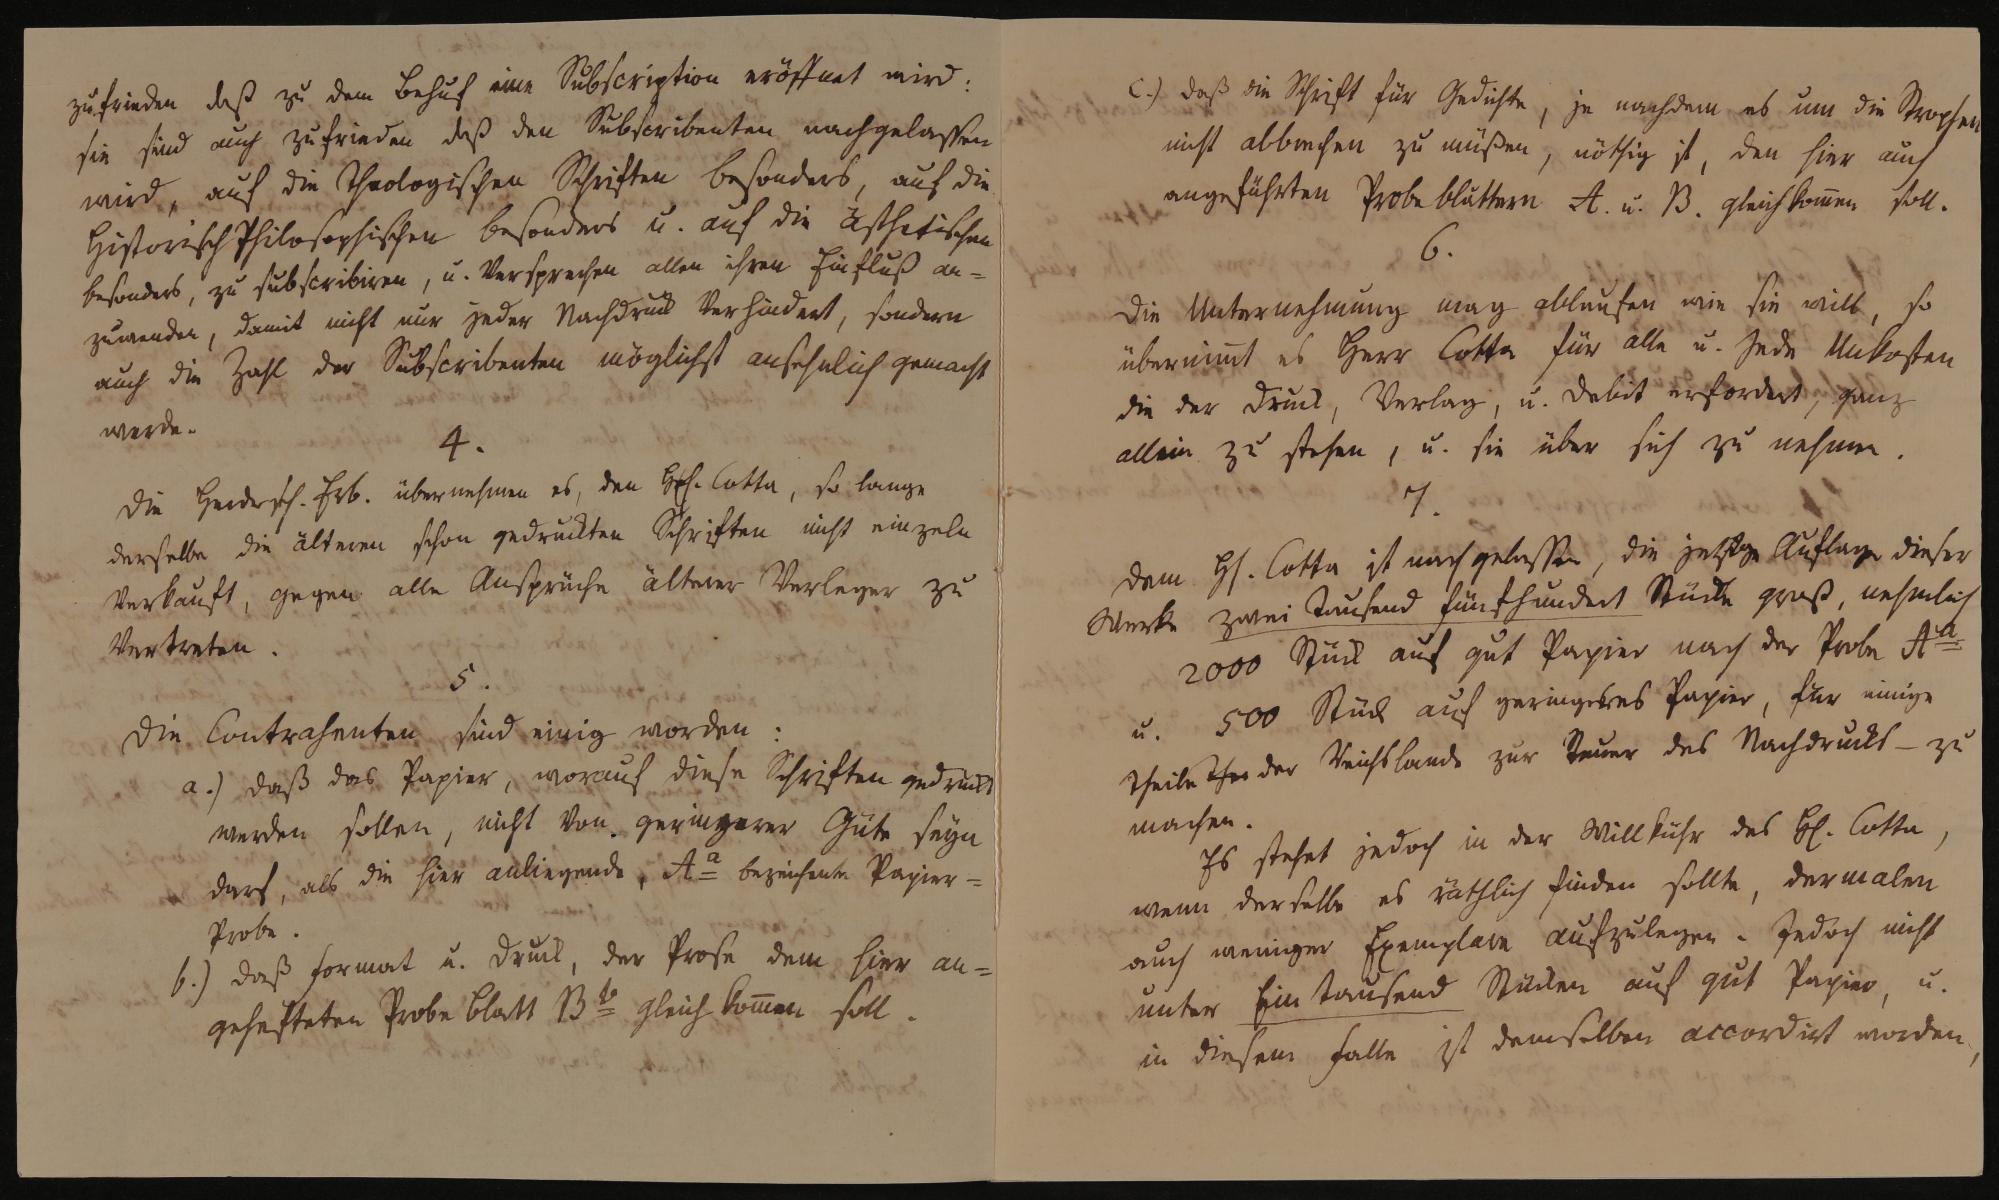 zufrieden daß zu dem Behuf eine Subscription eröffnet wird:
sie sind auch zufrieden daß den Subscribenten nachgelassen
wird, auf die Theologischen Schriften besonders, auf die
Historisch Philosophischen besonders u. auf die Ästhetischen
besonders, zu subscribiren, u. Versprechen allen ihren Einfluß an-
zuwenden, damit nicht nur jeder Nachdruck Verhindert, sondern
auch die Zahl der Subscribenten möglichst ansehnlich gemacht
werde.
4.
Die Herdersch. Erb. übernehmen es, den Cotta, so lange
derselbe die älteren schon gedruckten Schriften nicht einzeln
Verkauft, gegen alle Ansprüche älterer Verleger zu
Vertreten.
5.
Die Contrahenten sind einig worden:
a.) daß das Papier, worauf diese Schriften gedruckt
werden sollen, nicht von geringerer Güte seyn
darf, als die hier anliegende, Aa bezeichnete Papier-
Probe.
b.) daß format u. Druck, der Prose dem hier an-
gehefteten Probe blatt Bb gleich kom̄en soll.
C.) daß die Schrift für Gedichte, je nachdem es um die Strophen
nicht abbrechen zu müßen, nöthig ist, den hier auch
angeführten Probeblättern A. u. B. gleichkom̄en soll.
6.
Die Unternehmung mag ablaufen wie sie will, so
übernim̄t es Herr Cotta für alle u. Jede Unkosten
die der Druck, Verlag, u. Debit erfordert, ganz
allein zu stehen, u. sie über sich zu nehmen.
7.
Dem H. Cotta ist nachgelassen, die jetzige Auflage dieser
Werke zwei Tausend fünfhundert Stücke groß, nehmlich
2000 Stück auf gut Papier nach der Probe Aa
u. 500 Stück auf geringeres Papier, für einige
Theile der Reichslande zur Steuer des Nachdrucks – zu
machen.
Es stehet jedoch in der Willkühr des H. Cotta,
wenn derselbe es räthlich finden sollte, dermalen
auch weniger Exemplare aufzulegen. Jedoch nicht
unter Ein tausend Stücken auf gut Papier, u.
in diesem Falle ist demselben accordirt worden,